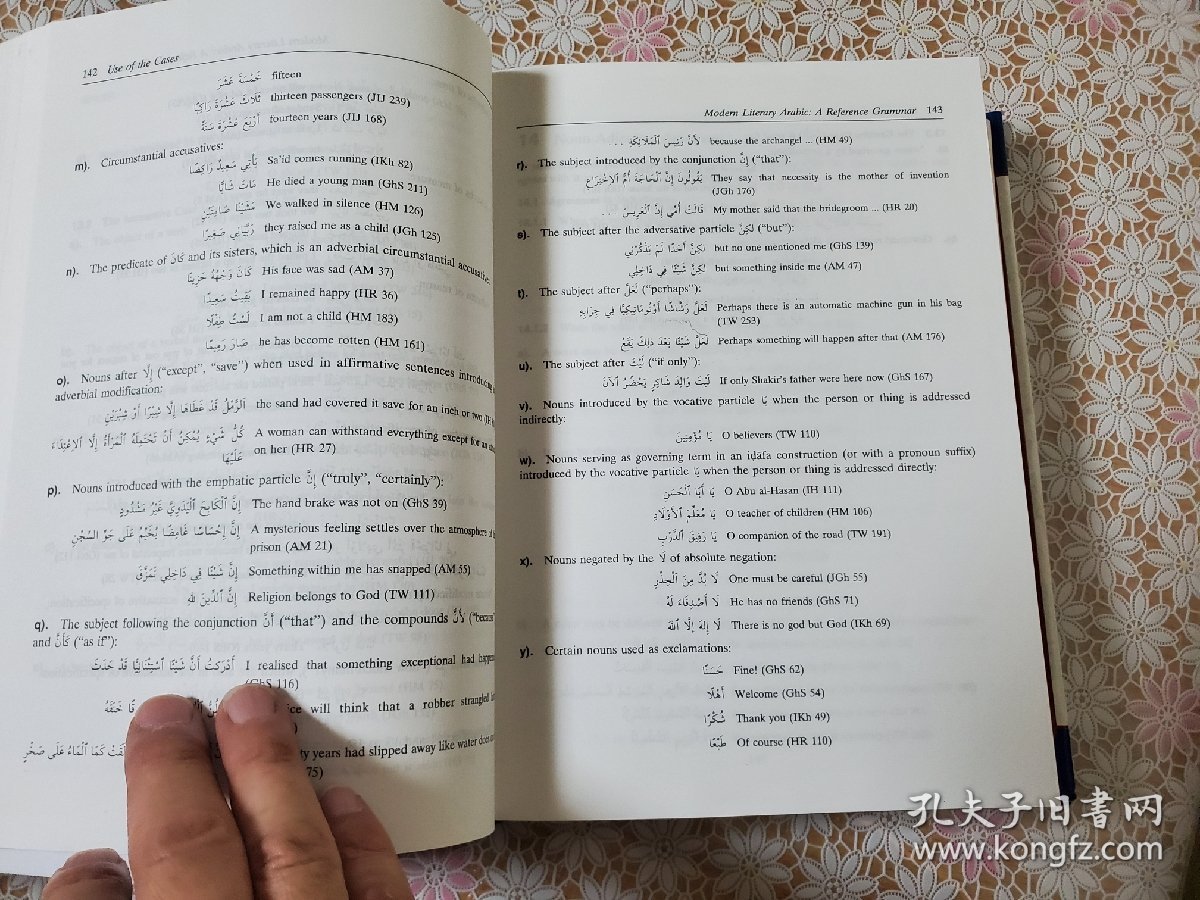 142 Use of the Cases
خَمْسَةَ عَشَرَ fifteen
ثَلَاثَ عَشْرَةَ رَاكِبٍ thirteen passengers (JIJ 239)
أَرْبَعَ عَشْرَةَ سَنَةً fourteen years (JIJ 168)
m). Circumstantial accusatives:
يَأْتِي سَعِيدٌ رَاكِضًا Sa'id comes running (IKh 82)
مَاتَ شَابًّا He died a young man (GhS 211)
مَشَيْنَا صَامِتِينَ We walked in silence (HM 126)
رَبَّيَانِي صَغِيرًا they raised me as a child (JGh 125)
n). The predicate of كَانَ and its sisters, which is an adverbial circumstantial accusative:
كَانَ وَجْهُهُ حَزِينًا His face was sad (AM 37)
بَقِيتُ سَعِيدًا I remained happy (HR 36)
لَسْتُ طِفْلًا I am not a child (HM 183)
صَارَ رَمِيمًا he has become rotten (HM 161)
o). Nouns after إِلَّا ("except", "save") when used in affirmative sentences introducing
adverbial modification:
اَلرَّمْلُ قَدْ غَطَّاهَا إِلَّا شِبْرًا أَوْ شِبْرَيْنِ the sand had covered it save for an inch or two
كُلُّ شَيْءٍ يُمْكِنُ أَنْ تَحْتَمِلَهُ ٱلْمَرْأَةُ إِلَّا ٱلِاعْتِدَاءَ A woman can withstand everything except for an
عَلَيْهَا on her (HR 27)
p). Nouns introduced with the emphatic particle إِنَّ ("truly", "certainly"):
إِنَّ ٱلْكَابِحَ ٱلْيَدَوِيَّ غَيْرُ مَشْدُودٍ The hand brake was not on (GhS 39)
إِنَّ إِحْسَاسًا غَامِضًا يُخَيِّمُ عَلَى جَوِّ السِّجْنِ A mysterious feeling settles over the atmosphere of
prison (AM 21)
إِنَّ شَيْئًا فِي دَاخِلِي تَمَزَّقَ Something within me has snapped (AM 55)
إِنَّ ٱلدِّينَ لِلهِ Religion belongs to God (TW 111)
q). The subject following the conjunction أَنَّ ("that") and the compounds لِأَنَّ ("because")
and كَأَنَّ ("as if"):
أَدْرَكْتُ أَنَّ شَيْئًا ٱسْتِثْنَائِيًّا قَدْ حَدَثَ I realised that something exceptional had
(GhS 116)
خَنَقَهُ will think that a robber strangled
كَمَا ٱلْمَاءُ عَلَى صَخْرٍ years had slipped away like water does
75)
Modern Literary Arabic: A Reference Grammar 143
لِأَنَّ رَئِيسَ ٱلْمَلَائِكَةِ ... because the archangel ... (HM 49)
r). The subject introduced by the conjunction إِنَّ ("that"):
يَقُولُونَ إِنَّ ٱلْحَاجَةَ أُمُّ ٱلِاخْتِرَاعِ They say that necessity is the mother of invention
(JGh 176)
قَالَتْ أُمِّي إِنَّ ٱلْعَرِيسَ ... My mother said that the bridegroom ... (HR 20)
s). The subject after the adversative particle لَكِنَّ ("but"):
لَكِنَّ أَحَدًا لَمْ يَذْكُرْنِي but no one mentioned me (GhS 139)
لَكِنَّ شَيْئًا فِي دَاخِلِي but something inside me (AM 47)
t). The subject after لَعَلَّ ("perhaps"):
لَعَلَّ رَشَّاشًا أُوتُومَاتِيكِيًّا فِي جِرَابِهِ Perhaps there is an automatic machine gun in his bag
(TW 253)
لَعَلَّ شَيْئًا بَعْدَ ذَلِكَ يَقَعُ Perhaps something will happen after that (AM 176)
u). The subject after لَيْتَ ("if only"):
لَيْتَ وَالِدَ شَاكِرٍ يَحْضُرُ ٱلْآنَ If only Shakir's father were here now (GhS 167)
v). Nouns introduced by the vocative particle يَا when the person or thing is addressed
indirectly:
يَا مُؤْمِنِينَ O believers (TW 110)
w). Nouns serving as governing term in an iḍafa construction (or with a pronoun suffix)
introduced by the vocative particle يَا when the person or thing is addressed directly:
يَا أَبَا ٱلْحَسَنِ O Abu al-Hasan (IH 111)
يَا مُعَلِّمَ ٱلْأَوْلَادِ O teacher of children (HM 106)
يَا رَفِيقَ ٱلدَّرْبِ O companion of the road (TW 191)
x). Nouns negated by the لَا of absolute negation:
لَا بُدَّ مِنَ ٱلْحَذَرِ One must be careful (JGh 55)
لَا أَصْدِقَاءَ لَهُ He has no friends (GhS 71)
لَا إِلَهَ إِلَّا ٱللهُ There is no god but God (IKh 69)
y). Certain nouns used as exclamations:
حَسَنًا Fine! (GhS 62)
أَهْلًا Welcome (GhS 54)
شُكْرًا Thank you (IKh 49)
طَبْعًا Of course (HR 110)
孔夫子旧书网
www.kongfz.com